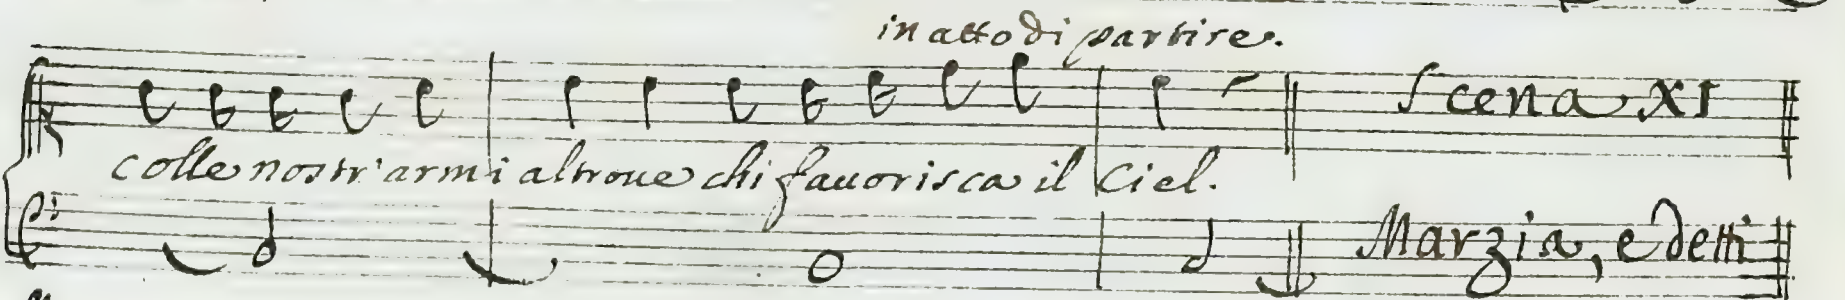 in atto di partire.
Scena XI
colle nostr'armi altroue chi fauorisca il Ciel.
Marzia, e detti